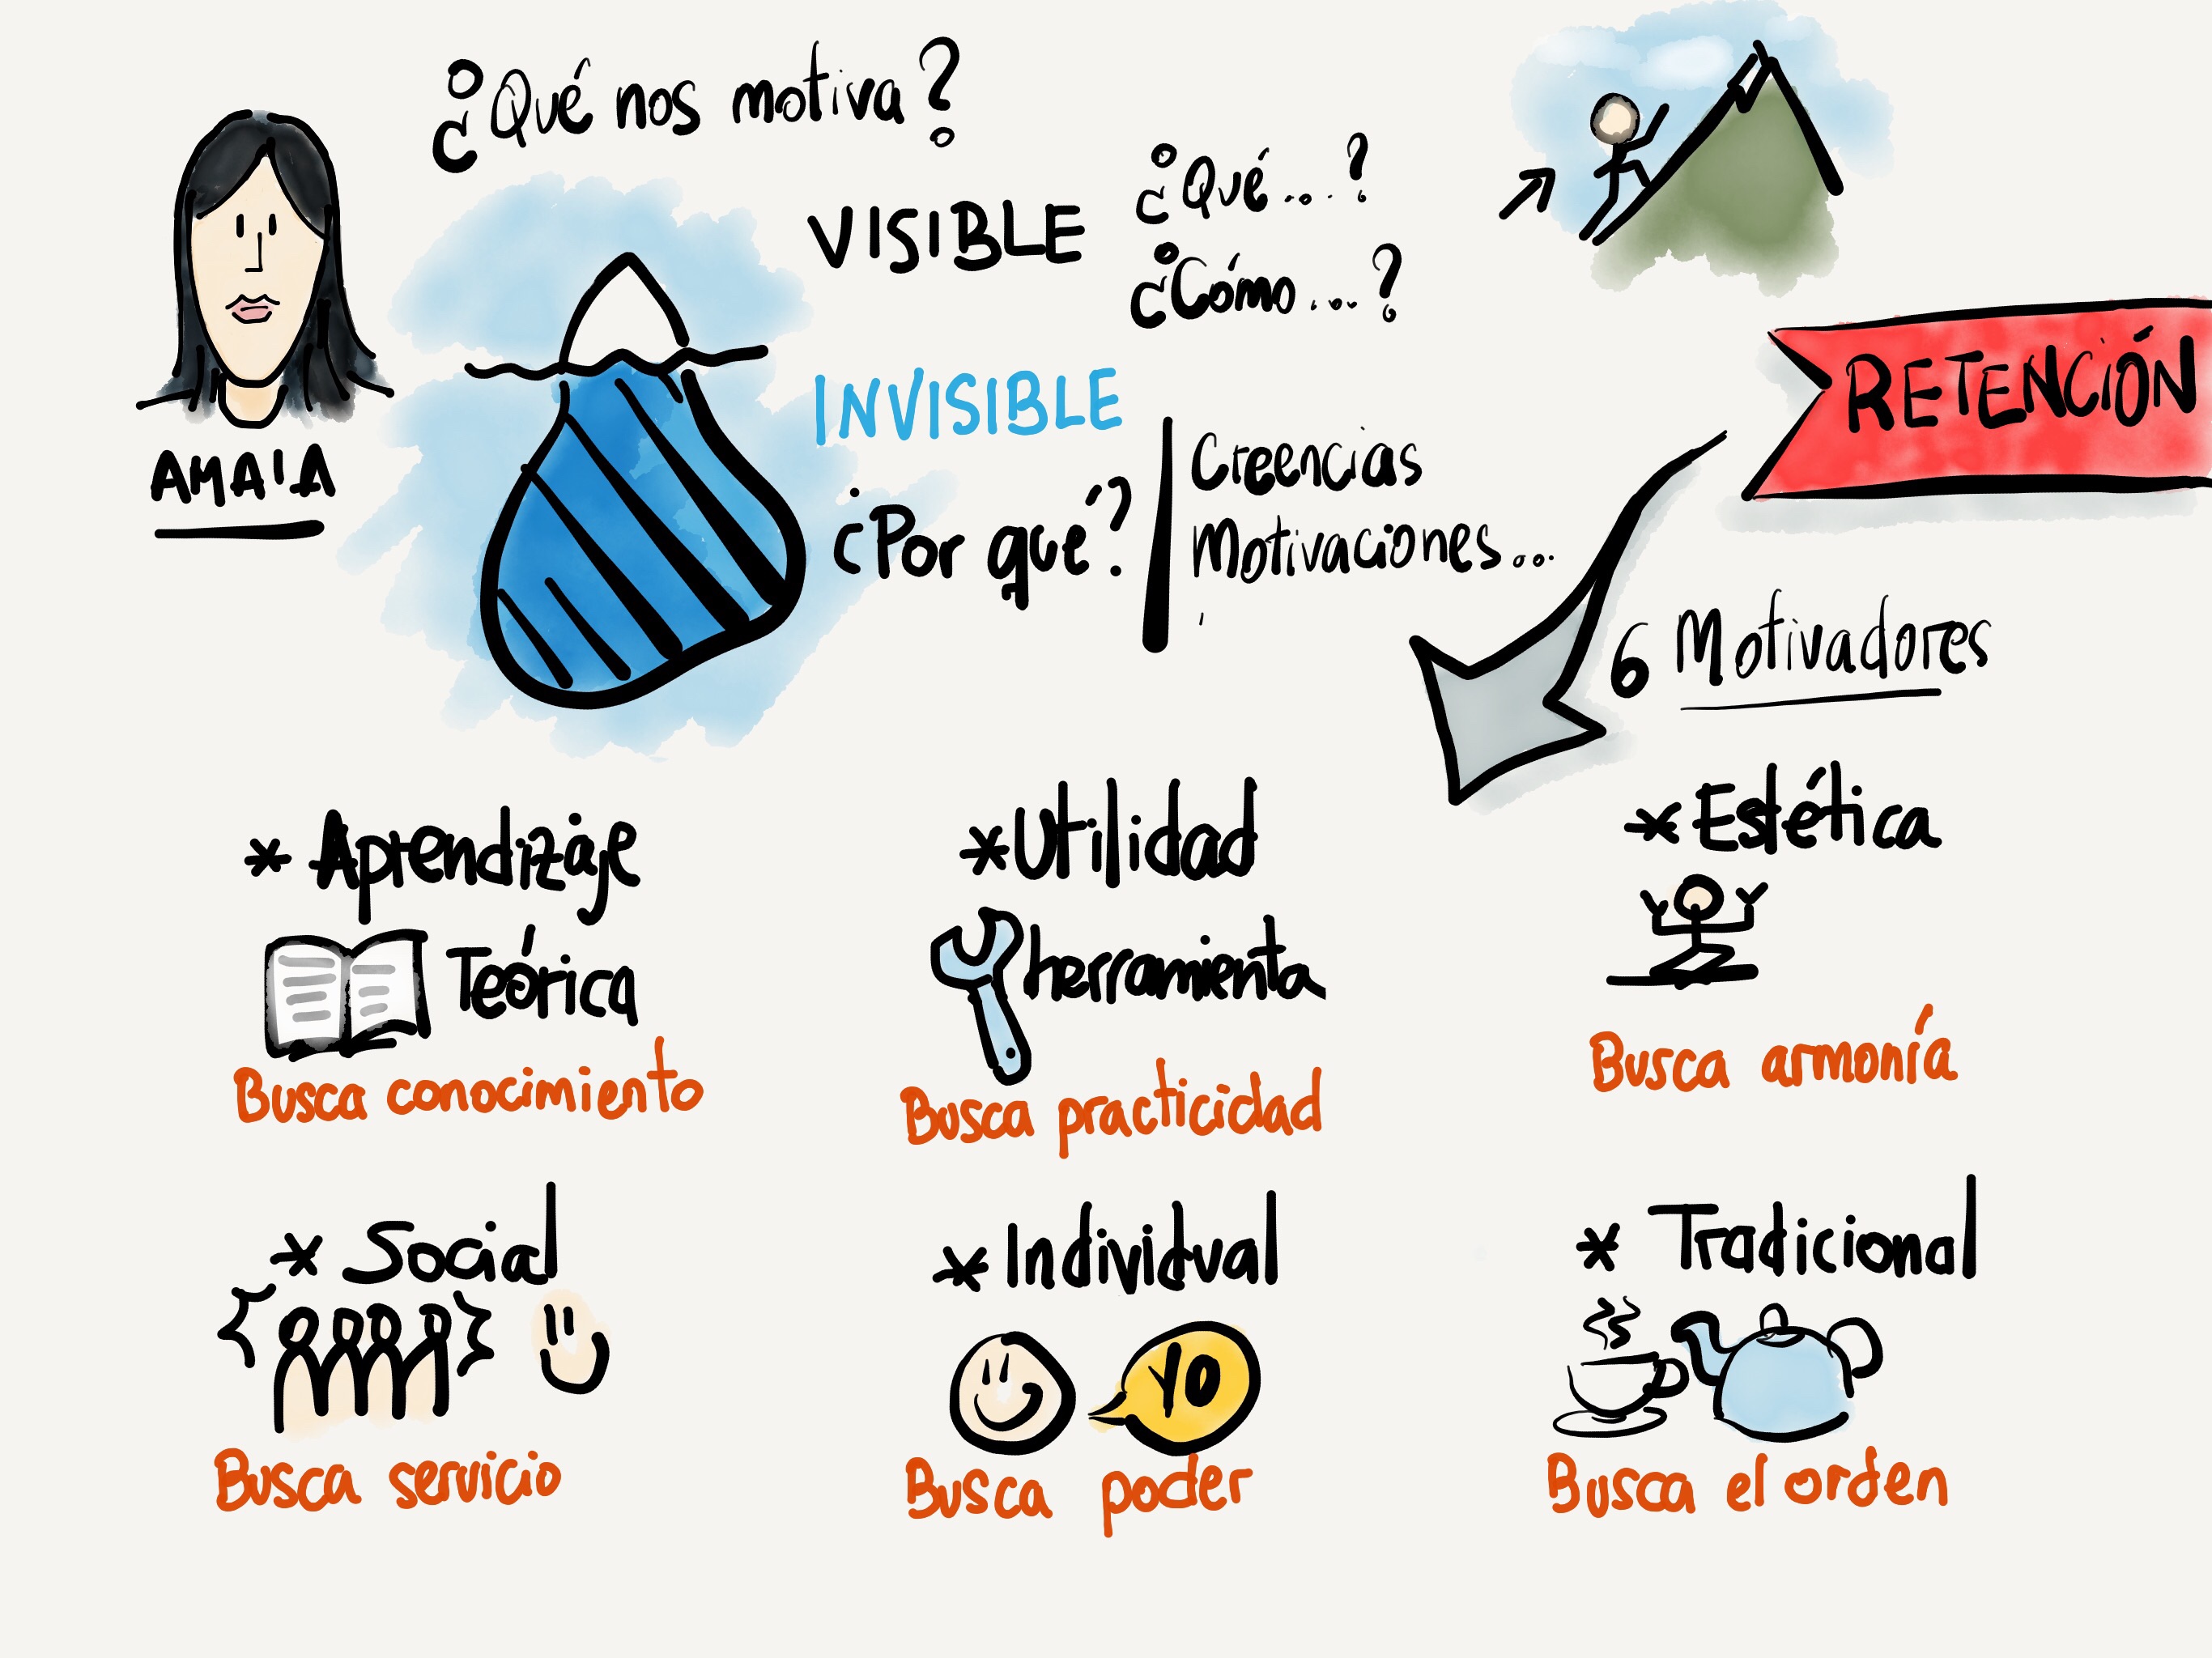 ¿Qué nos motiva?
AMAIA
VISIBLE
¿Qué...?
¿Cómo...?
INVISIBLE
¿Por qué?
Creencias
Motivaciones...
RETENCIÓN
6 Motivadores
* Aprendizaje
Teórica
Busca conocimiento
* Utilidad
herramienta
Busca practicidad
* Estética
Busca armonía
* Social
Busca servicio
* Individual
YO
Busca poder
* Tradicional
Busca el orden